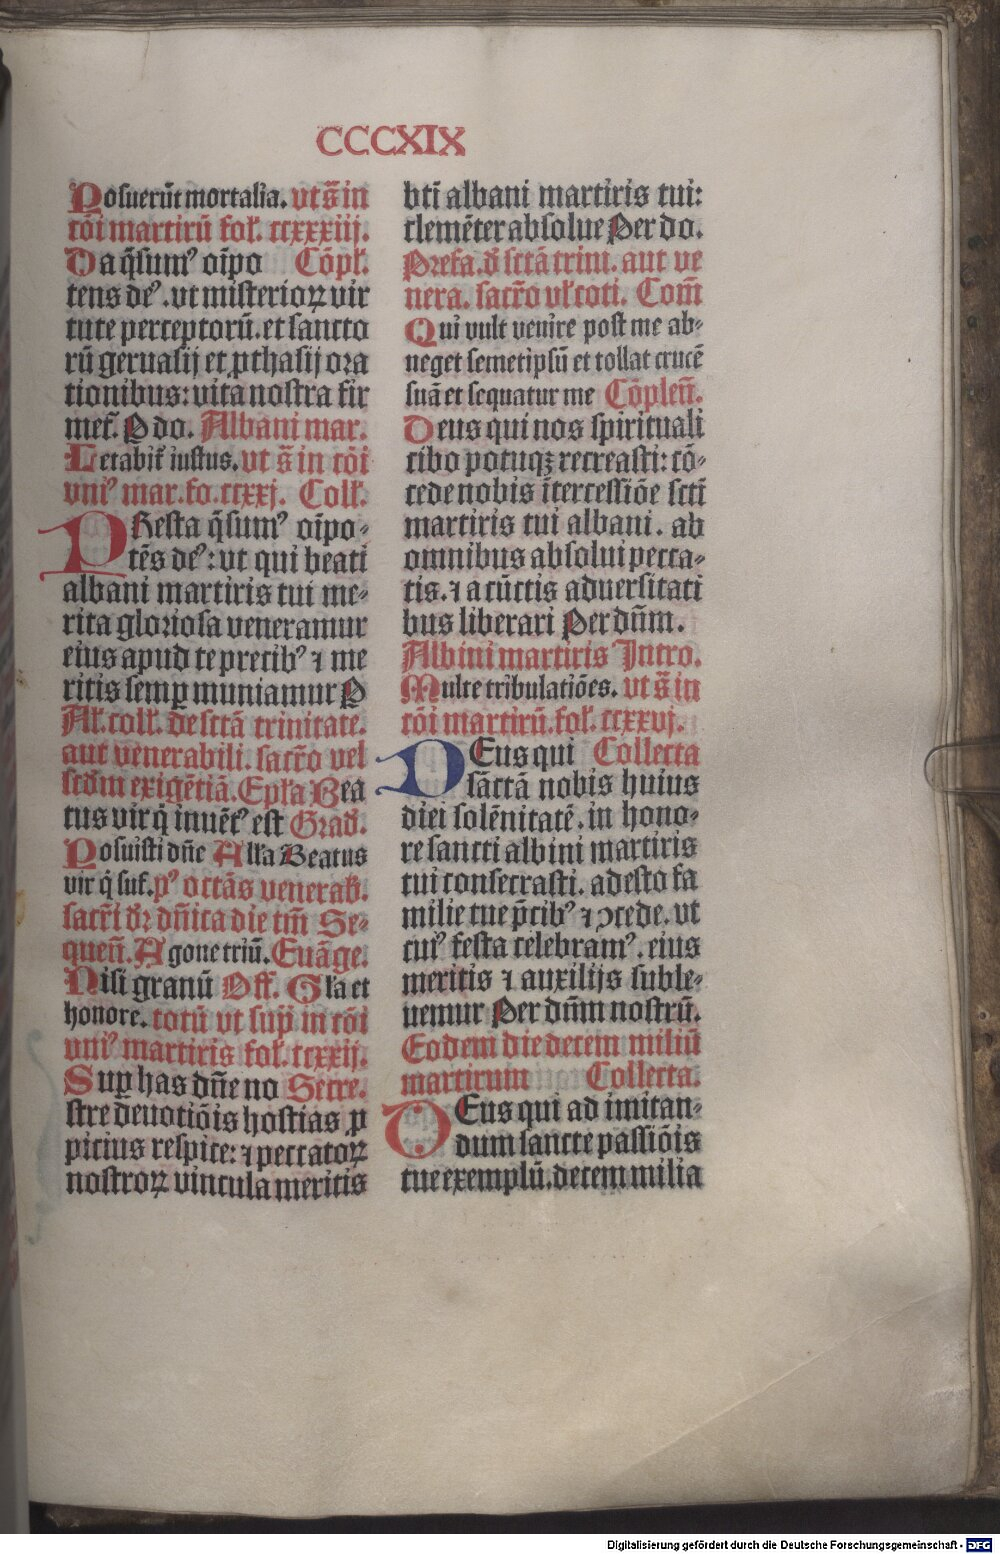 CCCXIX
Posuerūt mortalia. vt s̄ in
cōi martirū fol. ccxxxiij.
Da q̄sumꝰ oīpo Cōpl.
tens deꝰ. vt misterioꝝ vir
tute perceptorū. et sancto
rū geruasij et ꝓthasij ora
tionibus: vita nostra fir
met̄. P do. Albani mar.
Letabit̄ iustus. vt s̄ in cōi
vniꝰ mar. fo. ccxxj. Coll.
PResta q̄sumꝰ oīpo-
tēs deꝰ: vt qui beati
albani martiris tui me-
rita gloriosa veneramur
eius apud te precibꝰ ⁊ me
ritis semꝑ muniamur P
Al. coll. de sctā trinitate.
aut venerabili. sacro vel
scdm exigētiā. Epla Bea
tus vir q̄ inuēt̄ est Grad.
Posuisti dñe Alla Beatus
vir q̄ suf. pꝰ octās venerab.
sacri dr dñica die tm̄ Se-
queñ. Agone triū. Euāge.
Nisi granū Off. Gla et
honore. totū vt supͥ in cōi
vniꝰ martiris fol. ccxxij.
Suꝑ has dñe no Secre.
stre deuotiōis hostias ꝓ
picius respice: ⁊ peccatoꝝ
nostroꝝ vincula meritis
bti albani martiris tui:
clemēter absolue Per do.
Prefa. d̄ sctā trini. aut ve
nera. sacro vl coti. Com̄
Qui vult venire post me ab-
neget semetipsū et tollat crucē
suā et sequatur me Cōpleñ.
Deus qui nos spirituali
cibo potuqꝫ recreasti: cō-
cede nobis ītercessiōe scti
martiris tui albani. ab
omnibus absolui pecca-
tis. ⁊ a cūctis aduersitati
bus liberari Per dñm.
Albini martiris Intro.
Multe tribulatiōes. vt s̄ in
cōi martirū. fol. ccxxvj.
DEus qui Collecta
sāctā nobis huius
diei solēnitatē. in hono-
re sancti albini martiris
tui consecrasti. adesto fa
milie tue p̄cibꝰ ⁊ ꝯcede. vt
cuiꝰ festa celebramꝰ. eius
meritis ⁊ auxilijs suble-
uemur Per dñm nostrū.
Eodem die decem miliū
martirum Collecta.
DEus qui ad imitan-
dum sancte passiōis
tue exemplū. decem milia
Digitalisierung gefördert durch die Deutsche Forschungsgemeinschaft - DFG